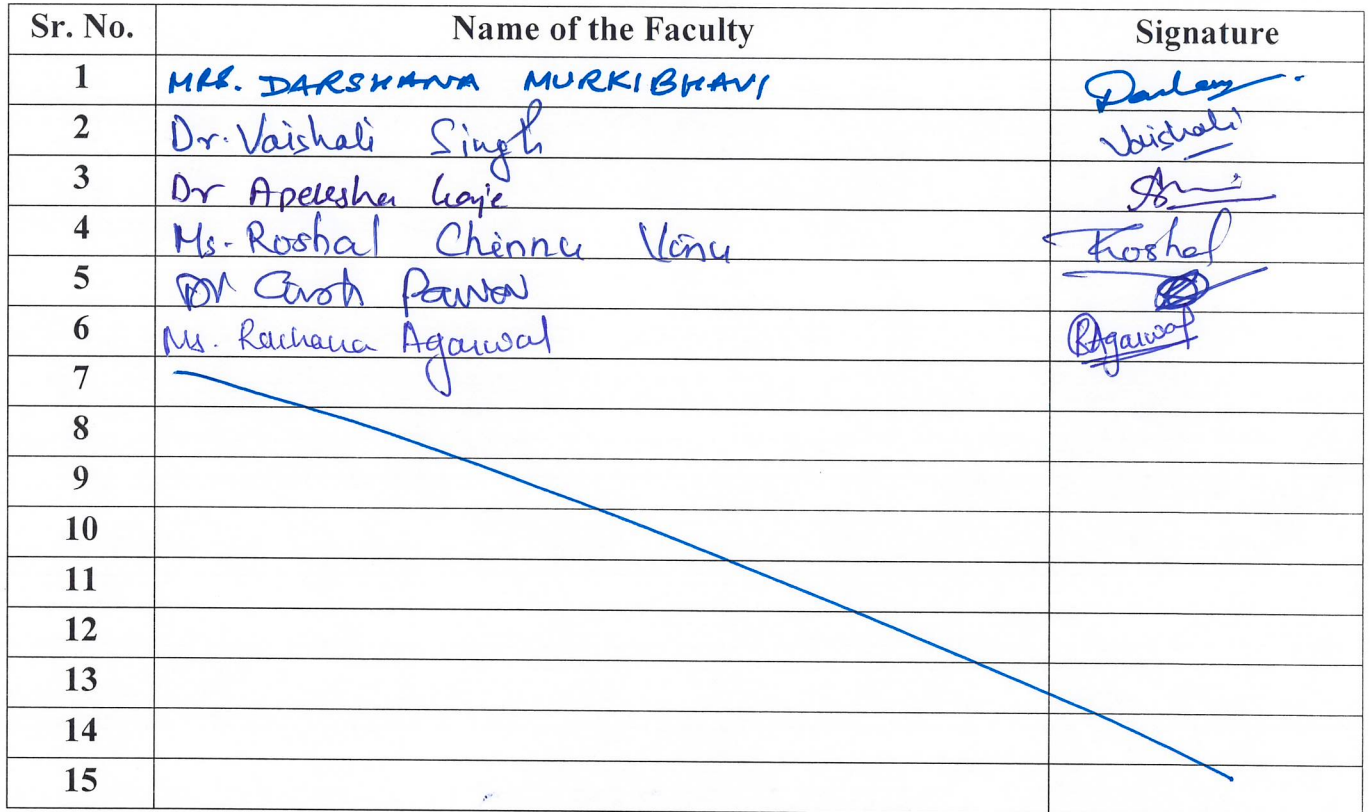 Sr. No. Name of the Faculty Signature
1 MRS. DARSHANA MURKIBHAVI
2 Dr. Vaishali Singh Vaishali
3 Dr Apeksha
4 Ms. Roshal Chinnu Vinu Roshal
5 Dr Pawar
6 Ms. Rachana Agarwal RAgarwal
7
8
9
10
11
12
13
14
15